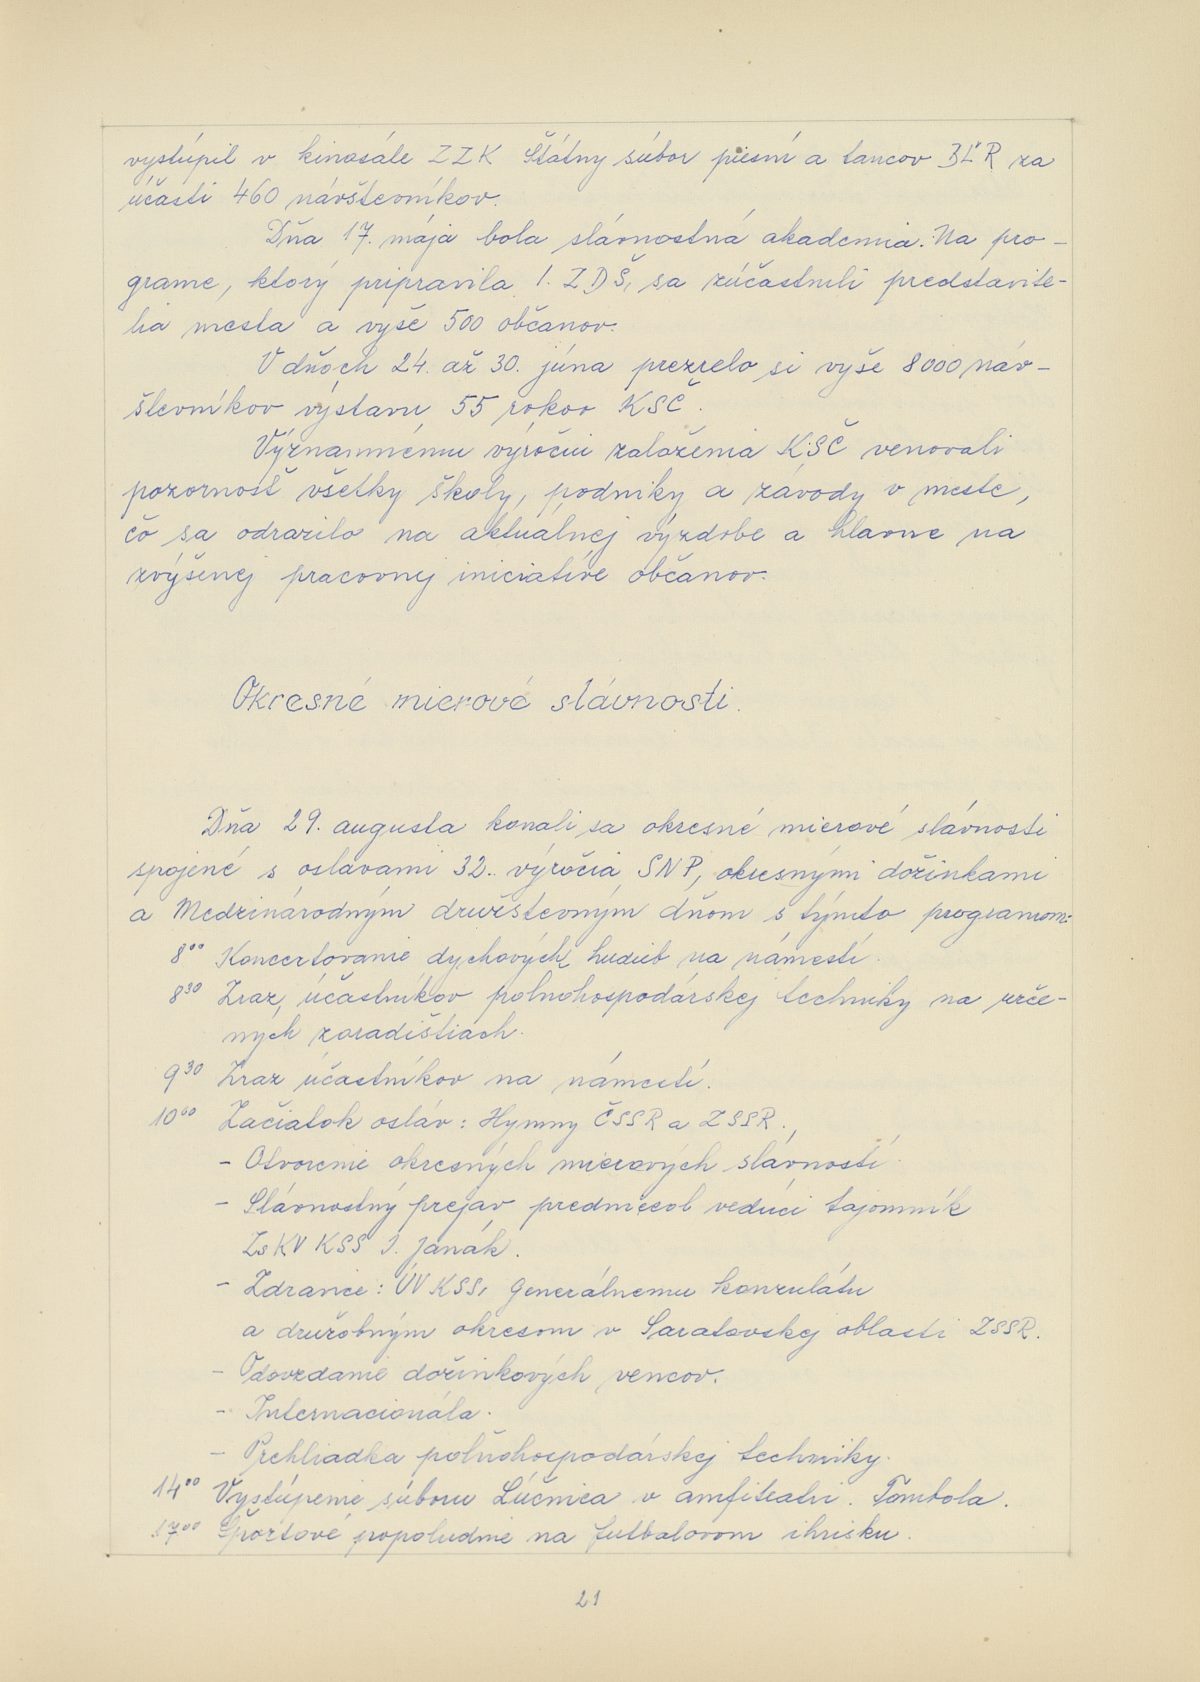 vystúpil v kinosále ZZK Štátny súbor piesní a tancov BĽR za
účasti 460 návštevníkov.
Dňa 17. mája bola slávnostná akademia. Na pro-
grame, ktorý pripravila I. ZDŠ, sa zúčastnili predstavite-
lia mesta a vyše 500 občanov.
V dňoch 24. až 30. júna prezrelo si vyše 8000 náv-
števníkov výstavu 55 rokov KSČ.
Významnému výročiu založenia KSČ venovali
pozornosť všetky školy, podniky a závody v meste,
čo sa odrazilo na aktuálnej výzdobe a hlavne na
zvýšenej pracovnej iniciatíve občanov.
Okresné mierové slávnosti.
Dňa 29. augusta konali sa okresné mierové slávnosti
spojené s oslavami 32. výročia SNP, okresnými dožinkami
a Medzinárodným družstevným dňom s týmto programom:
8⁰⁰ Koncertovanie dychových hudieb na námestí.
8³⁰ Zraz účastníkov poľnohospodárskej techniky na urče-
ných zoradištiach.
9³⁰ Zraz účastníkov na námestí.
10⁰⁰ Začiatok osláv: Hymny ČSSR a ZSSR.,
- Otvorenie okresných mierových slávností.
- Slávnostný prejav predniesol vedúci tajomník
ZsKV KSS J. Janák.
- Zdravice: ÚV KSS, Generálnemu konzulátu
a družobným okresom v Saratovskej oblasti ZSSR.
- Odovzdanie dožinkových vencov.
- Internacionála.
- Prehliadka poľnohospodárskej techniky.
14⁰⁰ Vystúpenie súboru Lúčnica v amfiteatri. Tombola.
17⁰⁰ Športové popoludnie na futbalovom ihrisku.
21